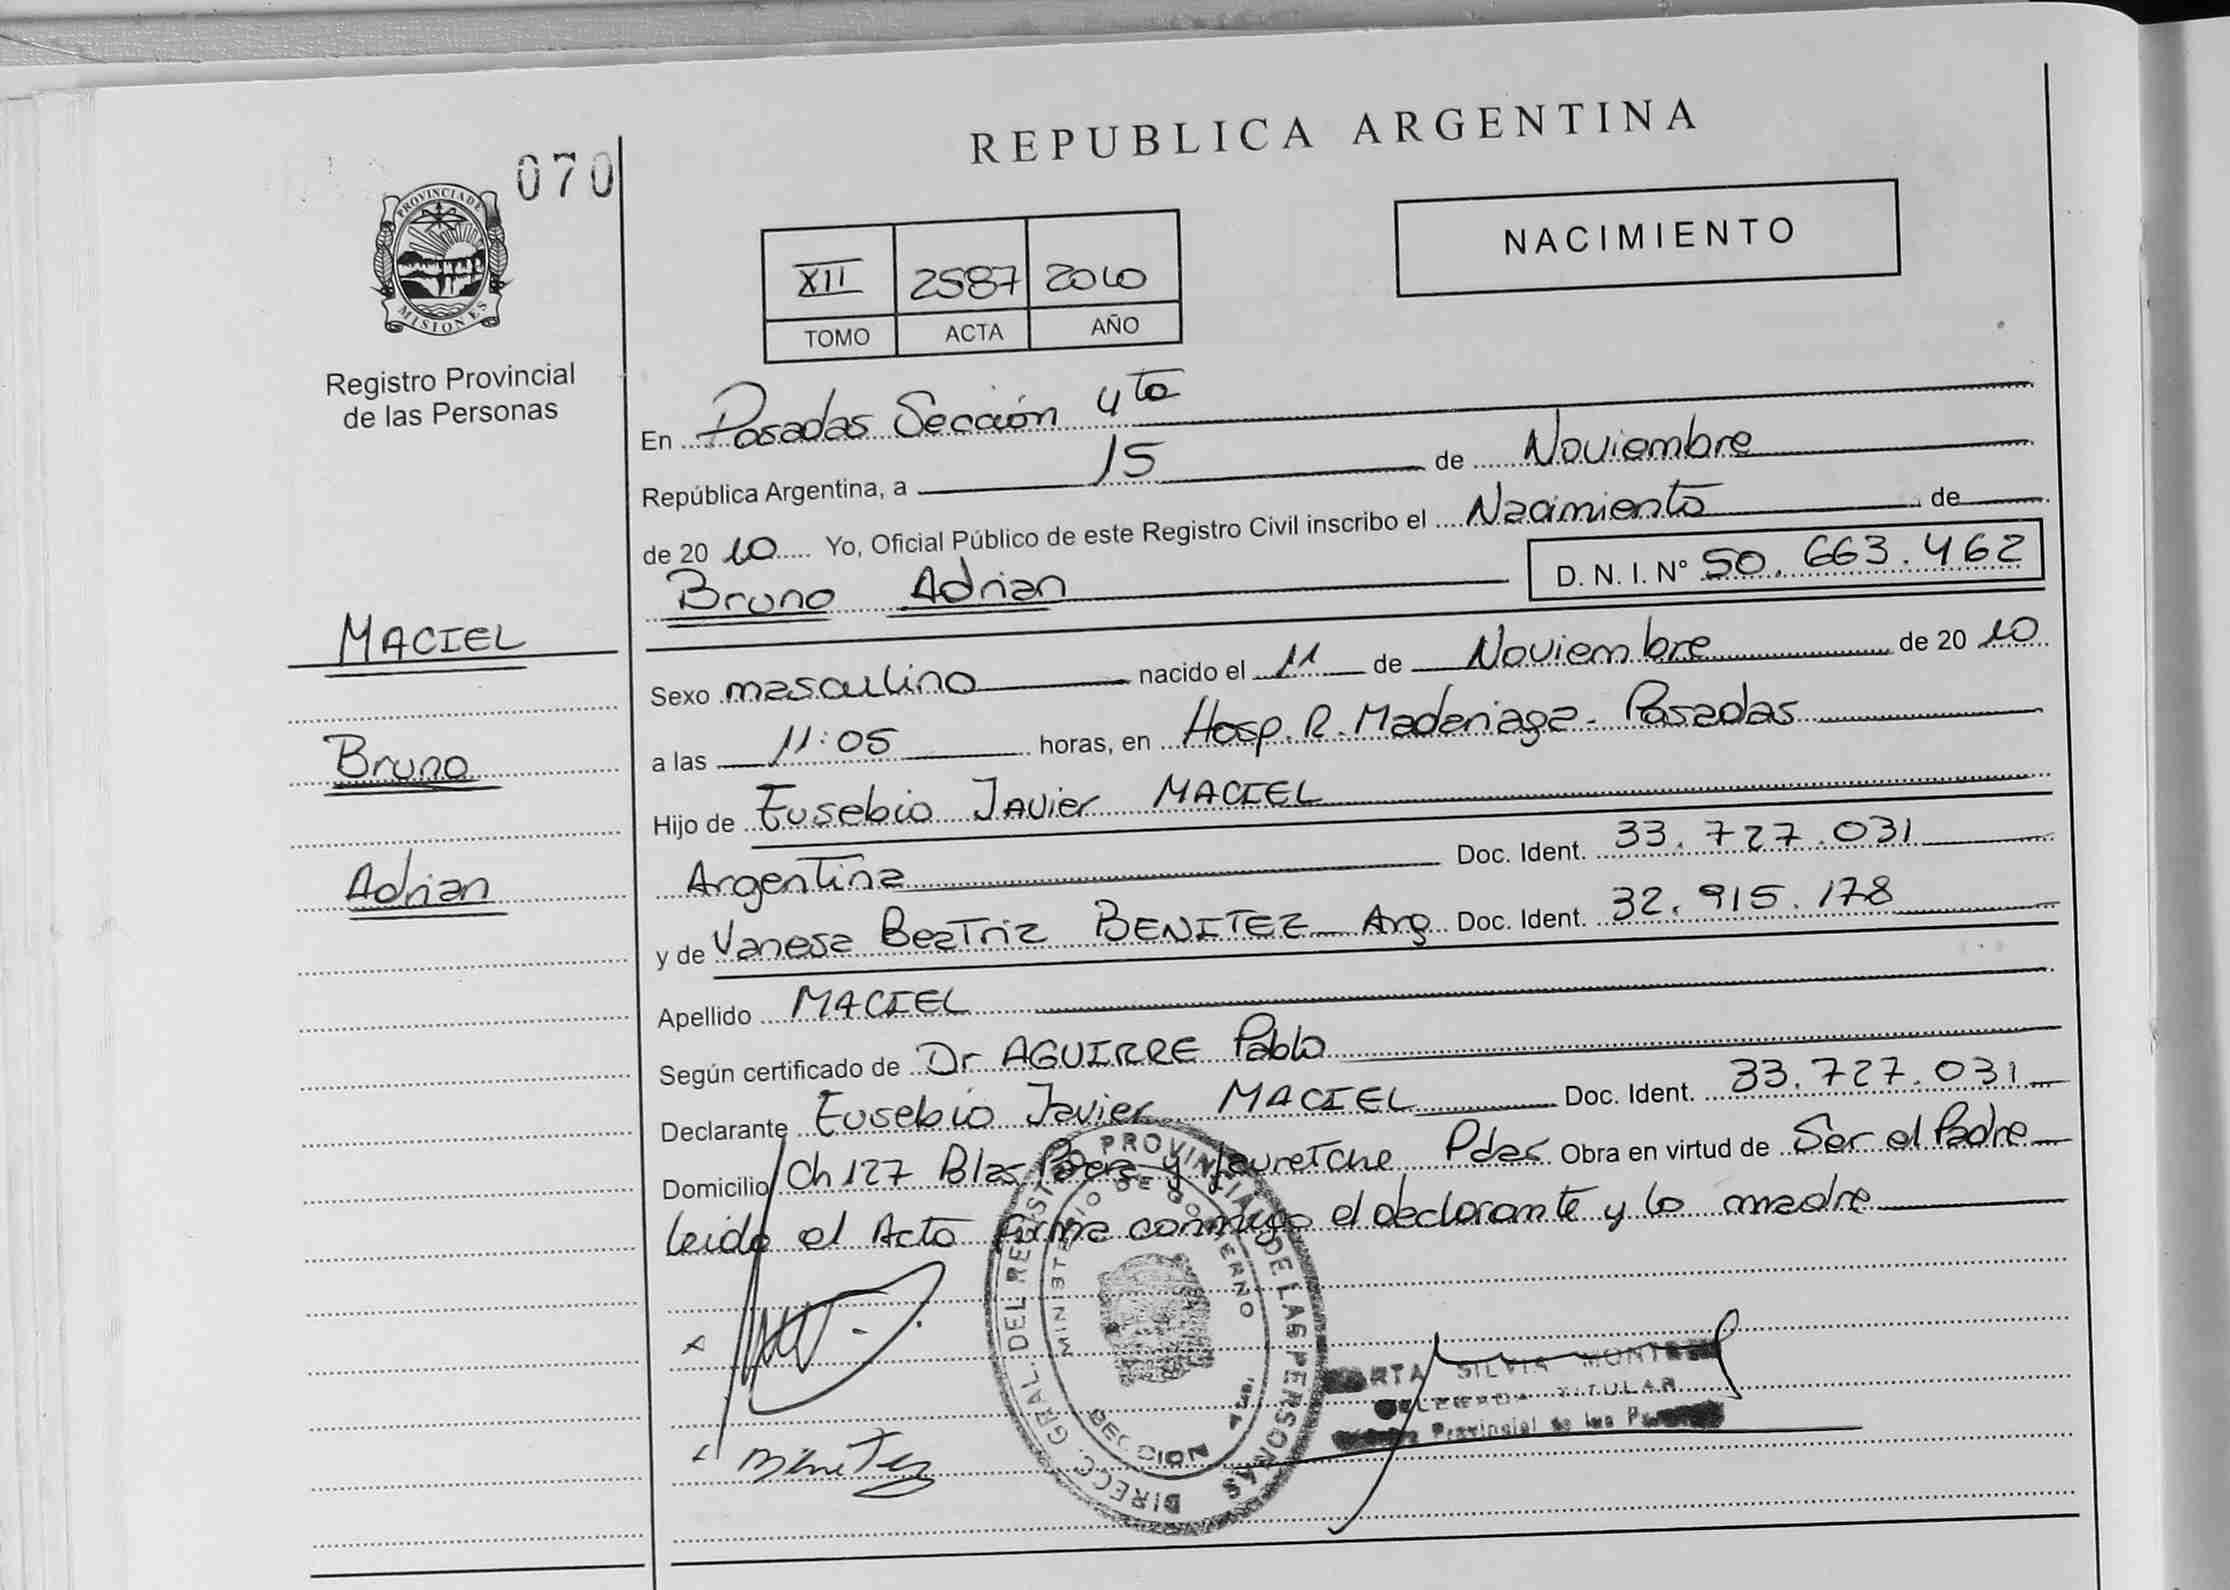 REPUBLICA ARGENTINA
070
PROVINCIA DE
MISIONES
Registro Provincial
de las Personas
NACIMIENTO
XII 2587 2010
TOMO ACTA AÑO
En Posadas Sección 4ta
República Argentina, a 15 de Noviembre
de 20 10 Yo, Oficial Público de este Registro Civil inscribo el Nacimiento de
Bruno Adrian D. N. I. N° 50.663.462
MACIEL
Bruno
Adrian
Sexo masculino nacido el 11 de Noviembre de 20 10
a las 11:05 horas, en Hosp. R. Madariaga - Posadas
Hijo de Eusebio Javier MACIEL
Argentina Doc. Ident. 33.727.031
y de Vanesa Beatriz BENITEZ Arg Doc. Ident. 32.915.178
Apellido MACIEL
Según certificado de Dr AGUIRRE Pablo
Declarante Eusebio Javier MACIEL Doc. Ident. 33.727.031
Domicilio Ch 127 Blas Parera y Jauretche Pdas Obra en virtud de Ser el Padre
leido el Acta firma conmigo el declarante y la madre
DIRECC. GRAL. DEL REGISTRO PROVINCIAL DE LAS PERSONAS
MINISTERIO DE GOBIERNO
SILVIA
TITULAR
Provincial de las
Benitez